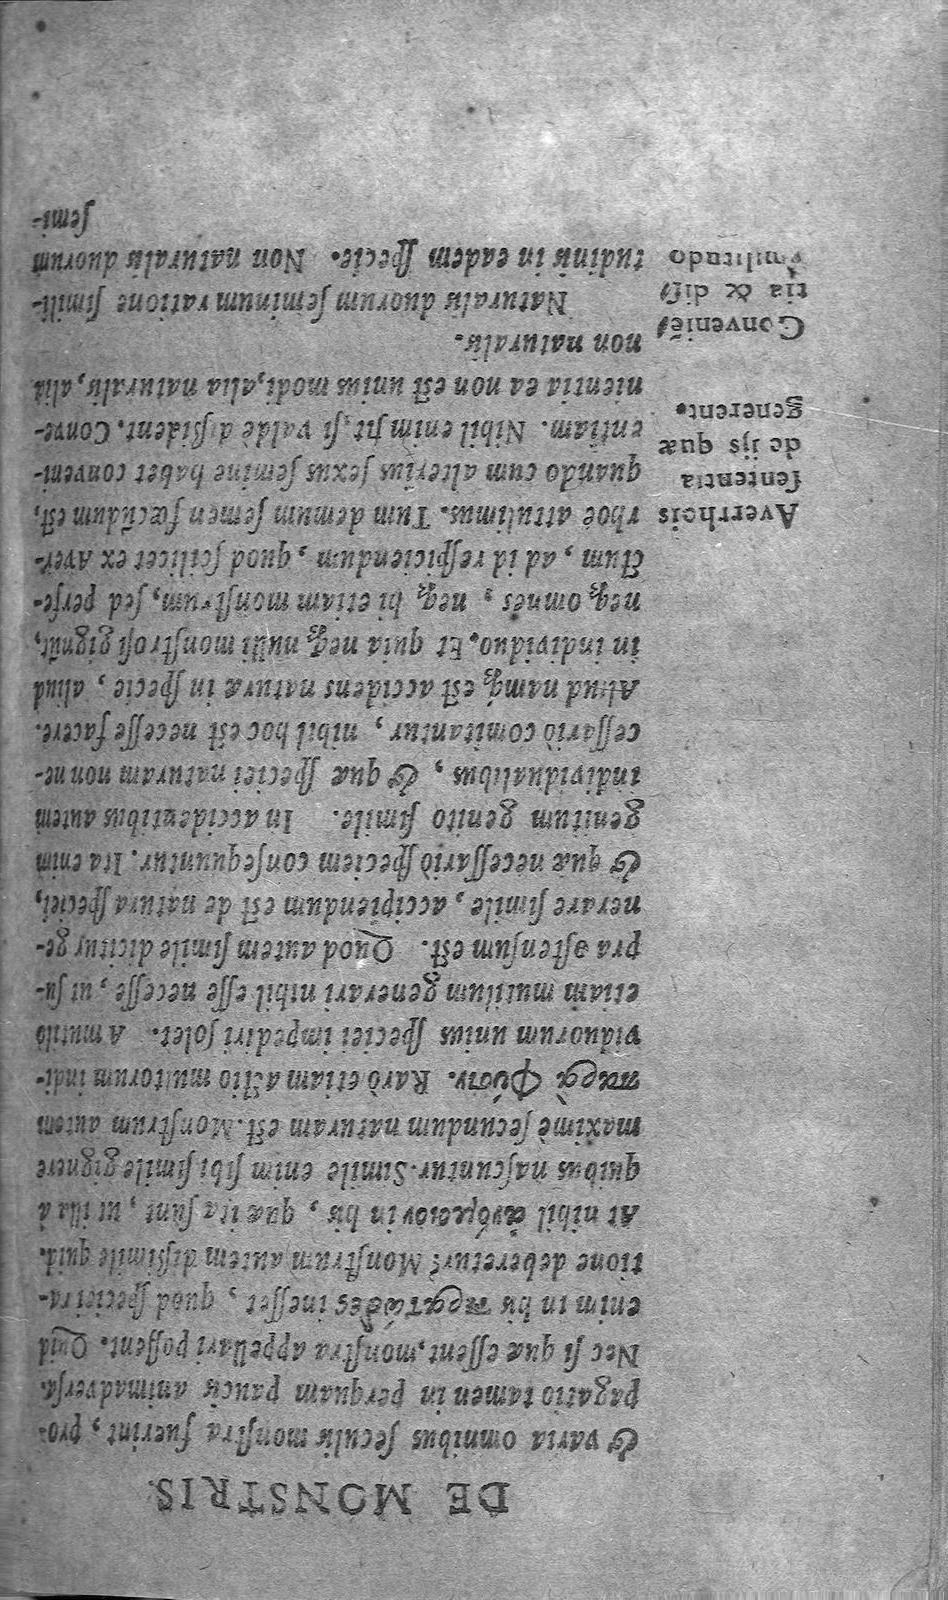 DE MONSTRIS.
& varia omnibus ſeculis monſtra fuerint, pro-
pagatio tamen in perquam paucis animadverſa.
Nec ſi quæ eſſent, monſtra appellari poſſent. Quid
enim in his τερατῶδες ineſſet, quod ſpeciei ra-
tione deberetur? Monſtrum autem diſſimile quid.
At nihil ἀνόμοιον in his, quæ ita ſunt, ut illa à
quibus naſcuntur. Simile enim ſibi ſimile gignere
maximè ſecundum naturam eſt. Monſtrum autem
παρὰ φύσιν. Rarò etiam actio multorum indi-
viduorum unius ſpeciei impediri ſolet. A mutilo
etiam mutilum generari nihil eſſe neceſſe, ut ſu-
pra oſtenſum eſt. Quod autem ſimile dicitur ge-
nerare ſimile, accipiendum eſt de natura ſpeciei,
& quæ neceſſariò ſpeciem conſequuntur. Ita enim
genitum genito ſimile. In accidentibus autem
individualibus, & quæ ſpeciei naturam non ne-
ceſſariò comitantur, nihil hoc eſt neceſſe facere.
Aliud namq; eſt accidens naturæ in ſpecie, aliud
in individuo. Et quia neq; nulli monſtroſi gignūt,
neq; omnes, neq; hi etiam monſtrum, ſed perfe-
ctum, ad id reſpiciendum, quod ſcilicet ex Aver-
rhoë attulimus. Tum demum ſemen fœcūdum eſt,
quando cum alterius ſexus ſemine habet conveni-
entiam. Nihil enim fit, ſi valde diſſident. Conve-
nientia ea non eſt unius modi, alia naturalis, alia
non naturalis.
Naturalis duorum ſeminum ratione ſimili-
tudinis in eadem ſpecie. Non naturalis duorum
ſemi-
Averrhois
ſententia
de ijs quæ
generent.
Conveniē
tia & diſ
ſimilitudo